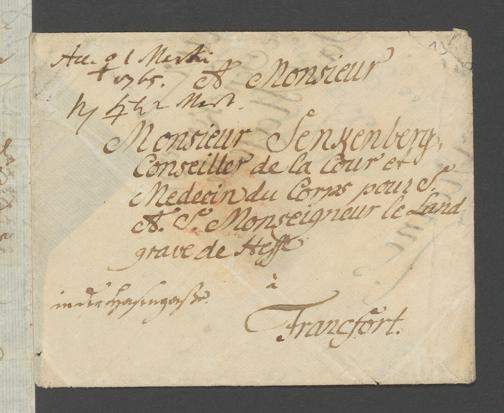 Acc. ♀ 1 Martii
1765. A Monsieur
Monsieur Senkenberg,
Conseiller de la Cour et
Medecin du Corps pour S.
A. S. Monseigneur le Land
grave de Hesse
à
in der Hasengasse
Francfort.